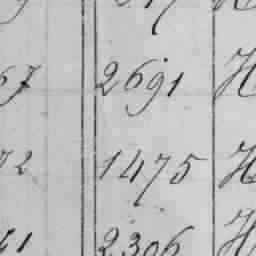 67 2691 H
72 1475 H
71 2306 H